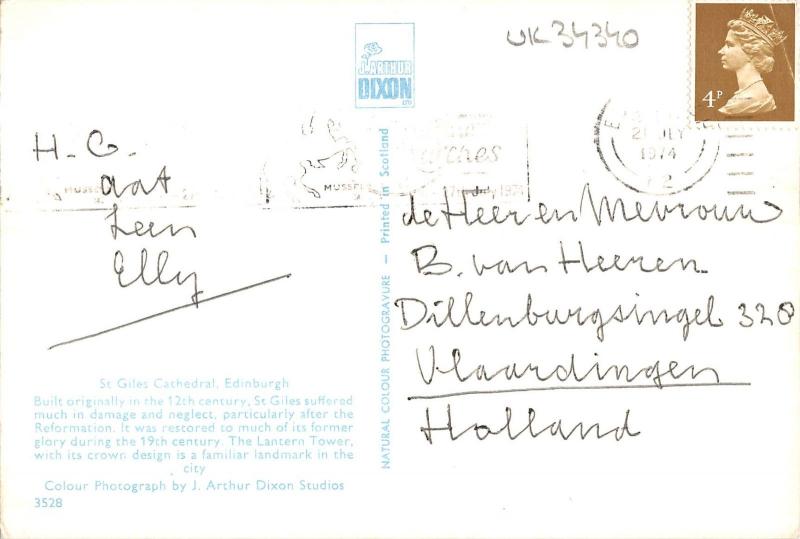 UK 34340
J. ARTHUR
DIXON
LTD
4P
21 JLY
1974
MUSSE
1974
H. G.
Aat
Leen
Elly
de Heer en Mevrouw
B. van Heeren
Dillenburgsingel 320
Vlaardingen
Holland
NATURAL COLOUR PHOTOGRAVURE — Printed in Scotland
St Giles Cathedral, Edinburgh
Built originally in the 12th century, St Giles suffered
much in damage and neglect, particularly after the
Reformation. It was restored to much of its former
glory during the 19th century. The Lantern Tower,
with its crown design is a familiar landmark in the
city
Colour Photograph by J. Arthur Dixon Studios
3528